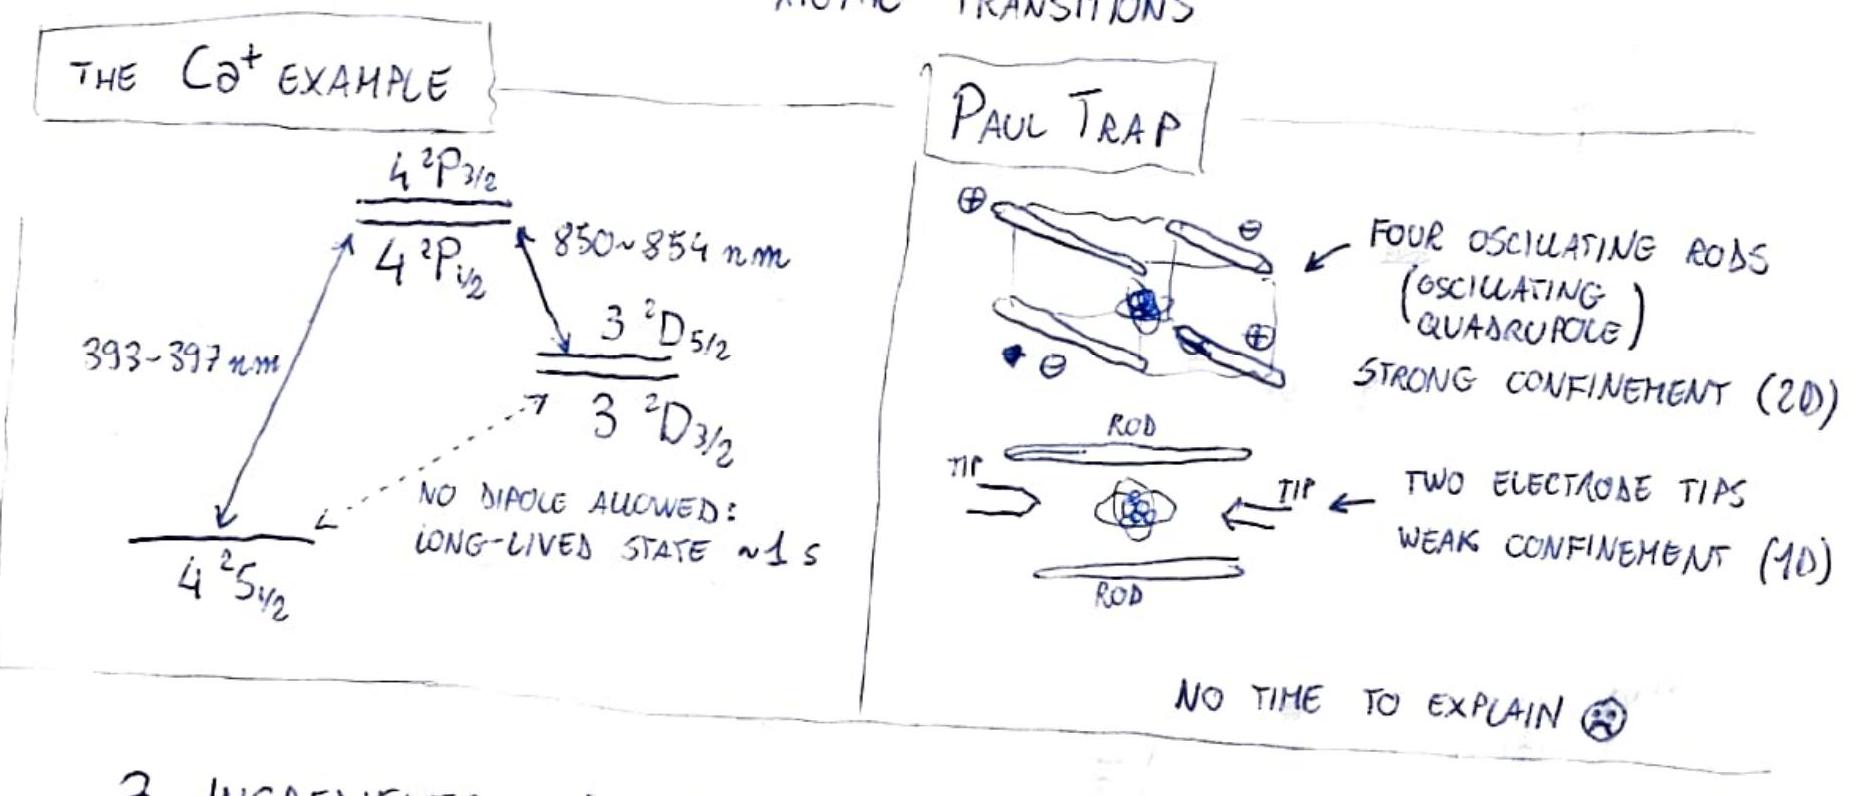 TRANSITIONS
THE Ca⁺ EXAMPLE
4 ²P3/2
4 ²P1/2
850~854 nm
393-397 nm
3 ²D5/2
3 ²D3/2
NO DIPOLE ALLOWED:
LONG-LIVED STATE ~1 s
4 ²S1/2
PAUL TRAP
⊕
⊖
⊕
⊖
FOUR OSCILLATING RODS
(OSCILLATING
QUADRUPOLE)
STRONG CONFINEMENT (2D)
ROD
TIP
TIP
TWO ELECTRODE TIPS
WEAK CONFINEMENT (1D)
ROD
NO TIME TO EXPLAIN ☹